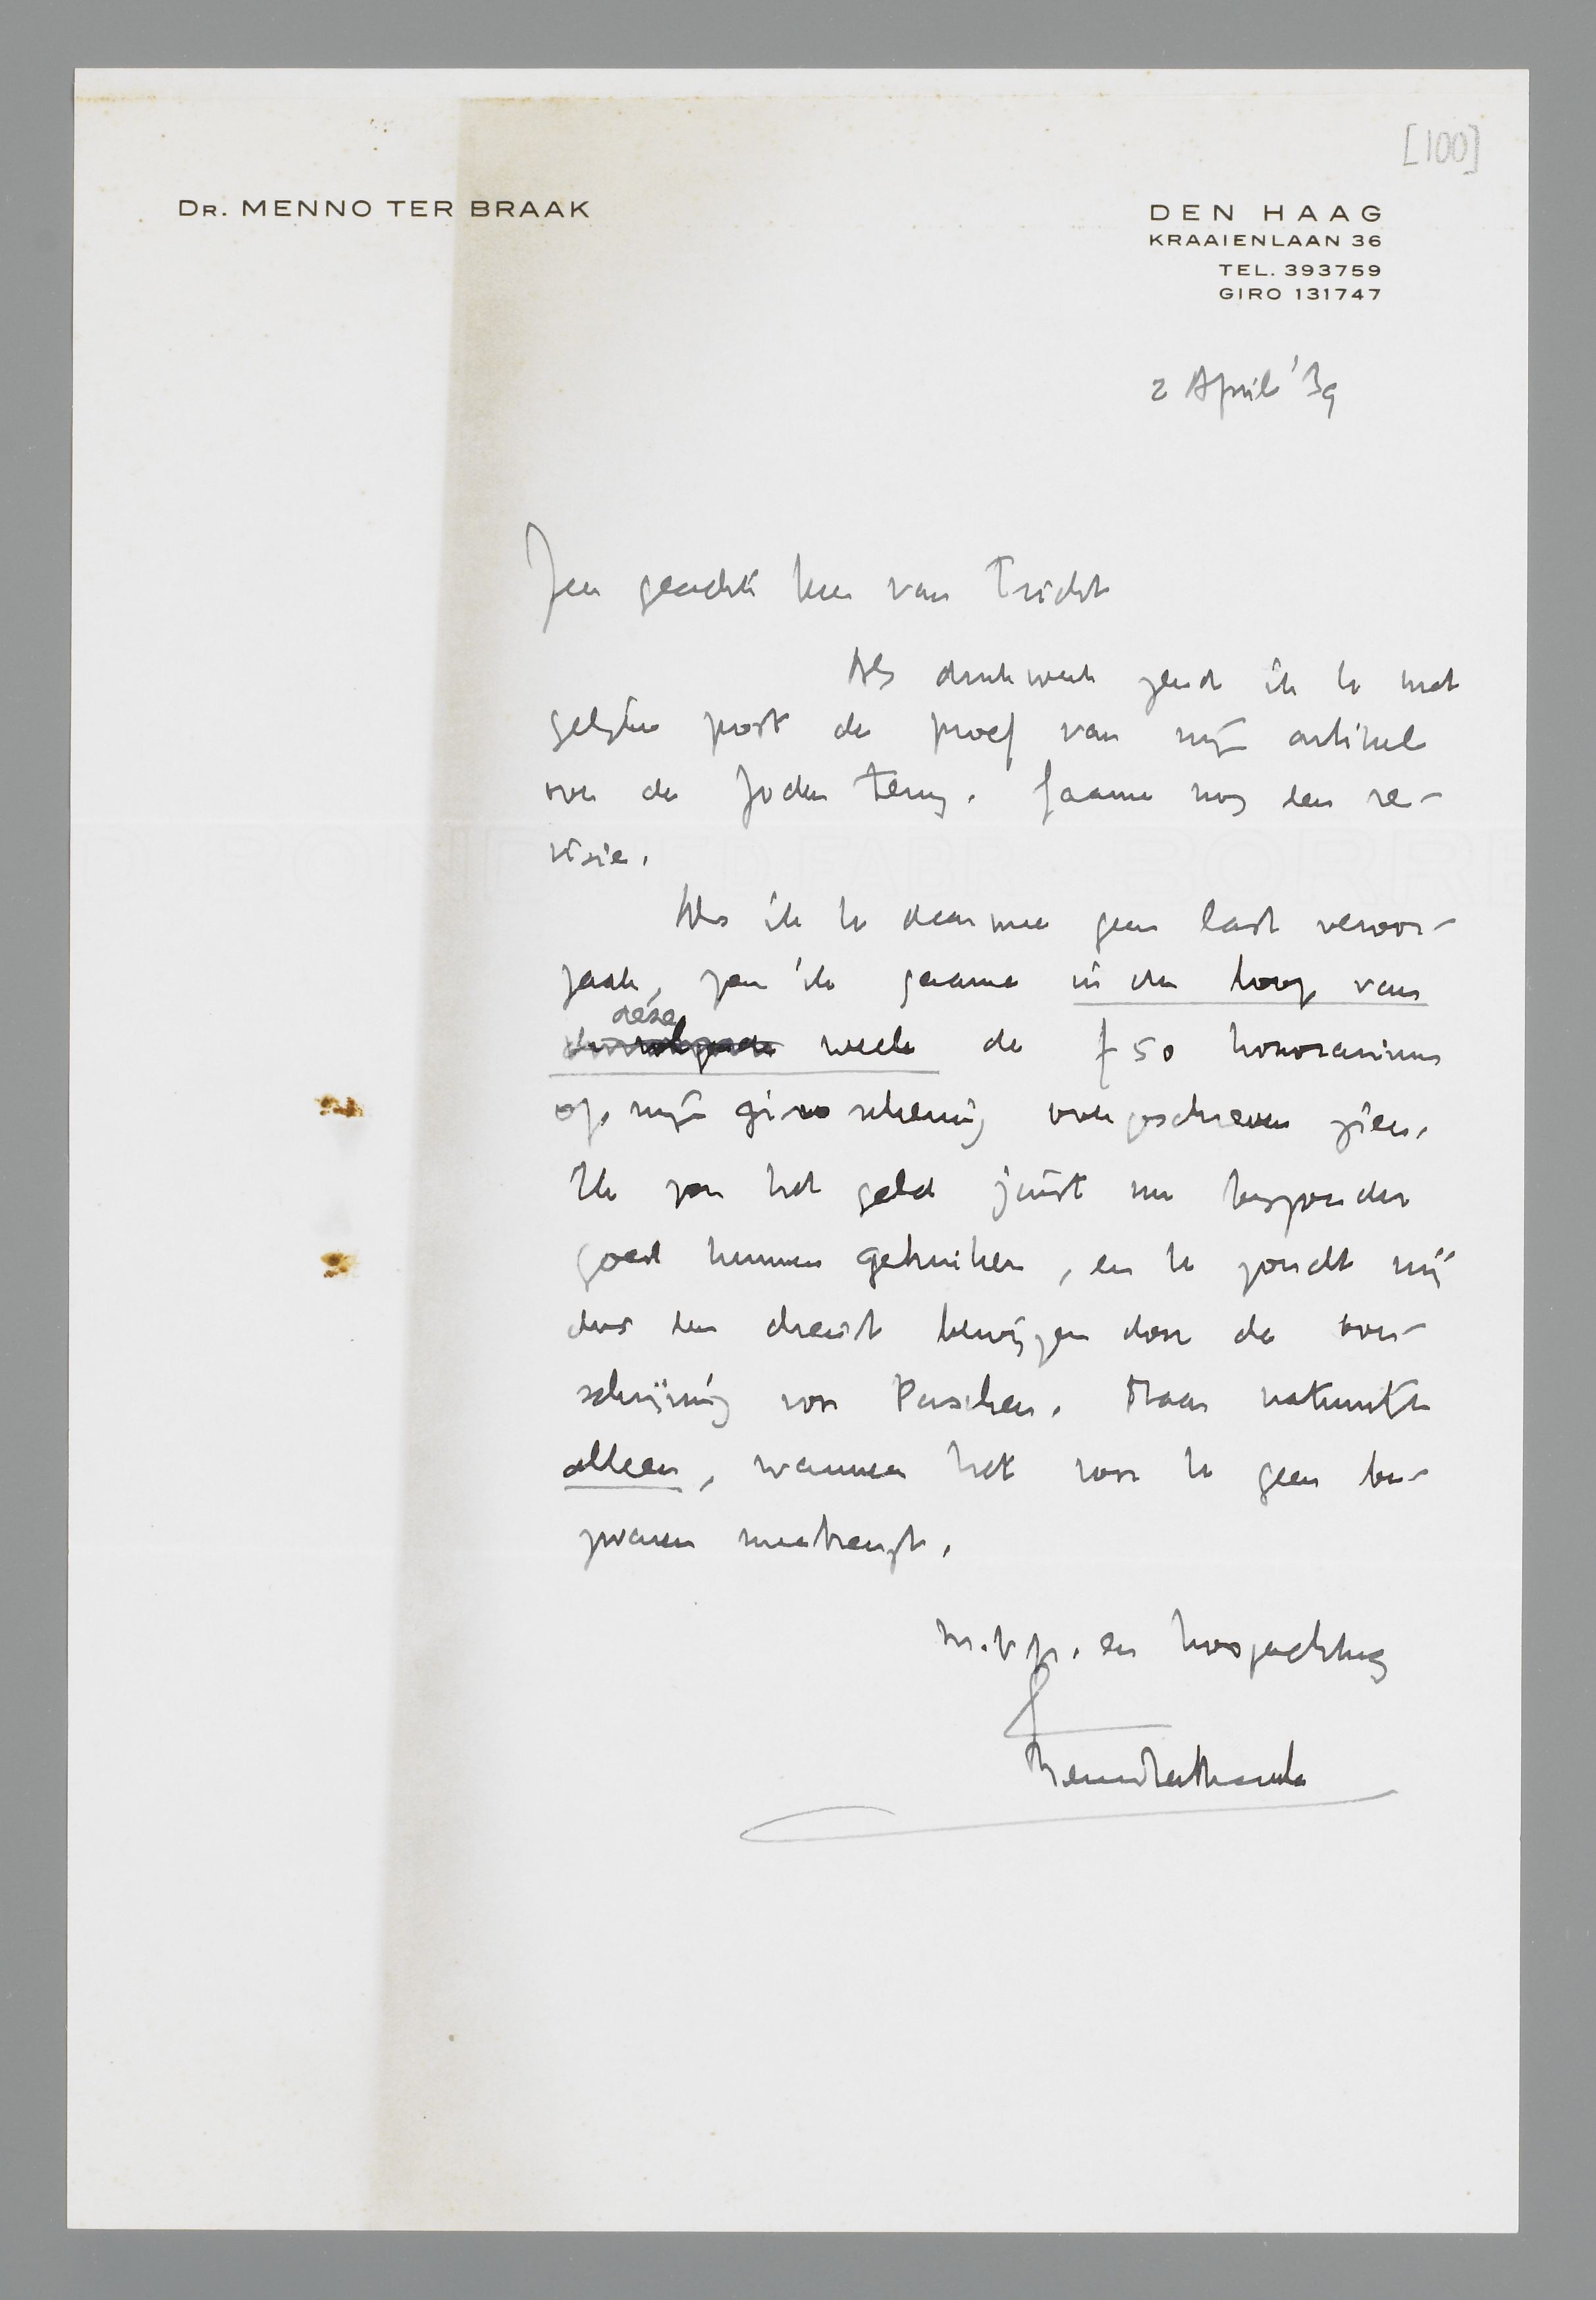 [100]
DR. MENNO TER BRAAK
DEN HAAG
KRAAIENLAAN 36
TEL. 393759
GIRO 131747
2 April '39
Zeer geachte heer van Tricht
Als drukwerk zend ik U met
gelijke post de proef van mijn artikel
over de Joden terug. Gaarne nog een re-
visie.
Als ik U daarmee geen last veroor-
zaak, zou ik gaarne in den loop van
deze
week de f 50 honorarium
op mijn girorekening overgeschreven zien.
Ik zou het geld juist nu bijzonder
goed kunnen gebruiken, en U zoudt mij
dus een dienst bewijzen door de over-
schrijving voor Paschen. Maar natuurlijk
alleen, wanneer het voor U geen be-
zwaren meebrengt.
m.v.h. en hoogachting
Menno ter Braak